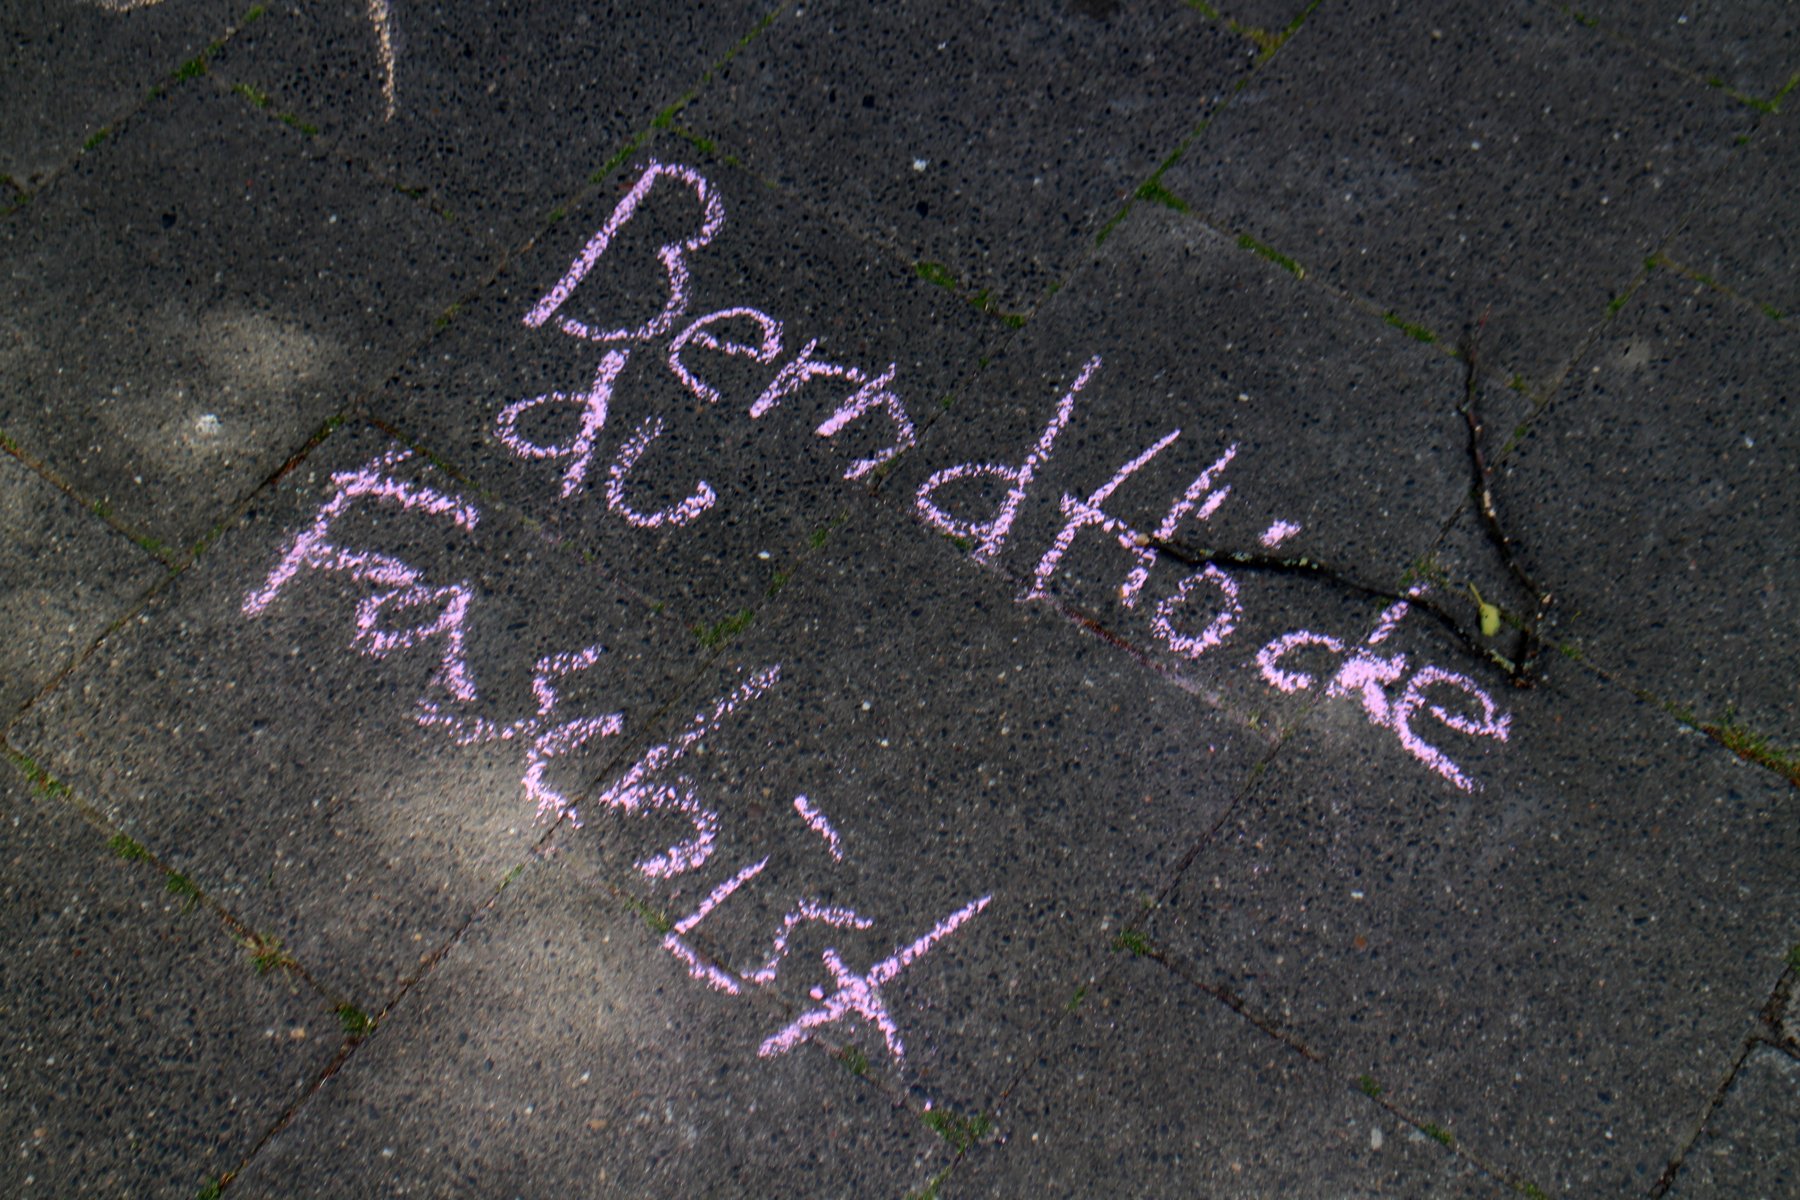 Bernd Höcke
du
Faschist